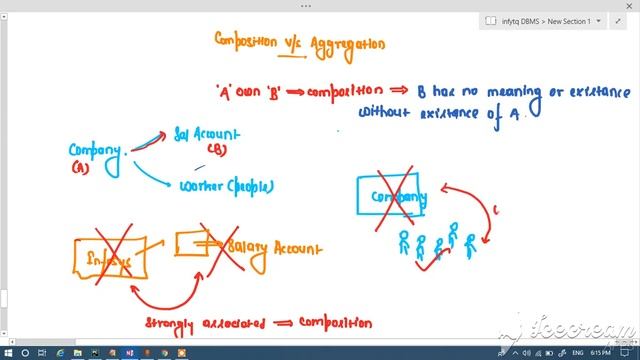 infytq DBMS > New Section 1
Composition v/s Aggregation
'A' own 'B' → composition ⇒ B has no meaning or existance
without existance of A.
Sal Account
(B)
Company.
(A)
Worker (people)
Company
Infosys
Salary Account
Strongly associated ⇒ composition
Icecream
ENG 6:15 PM